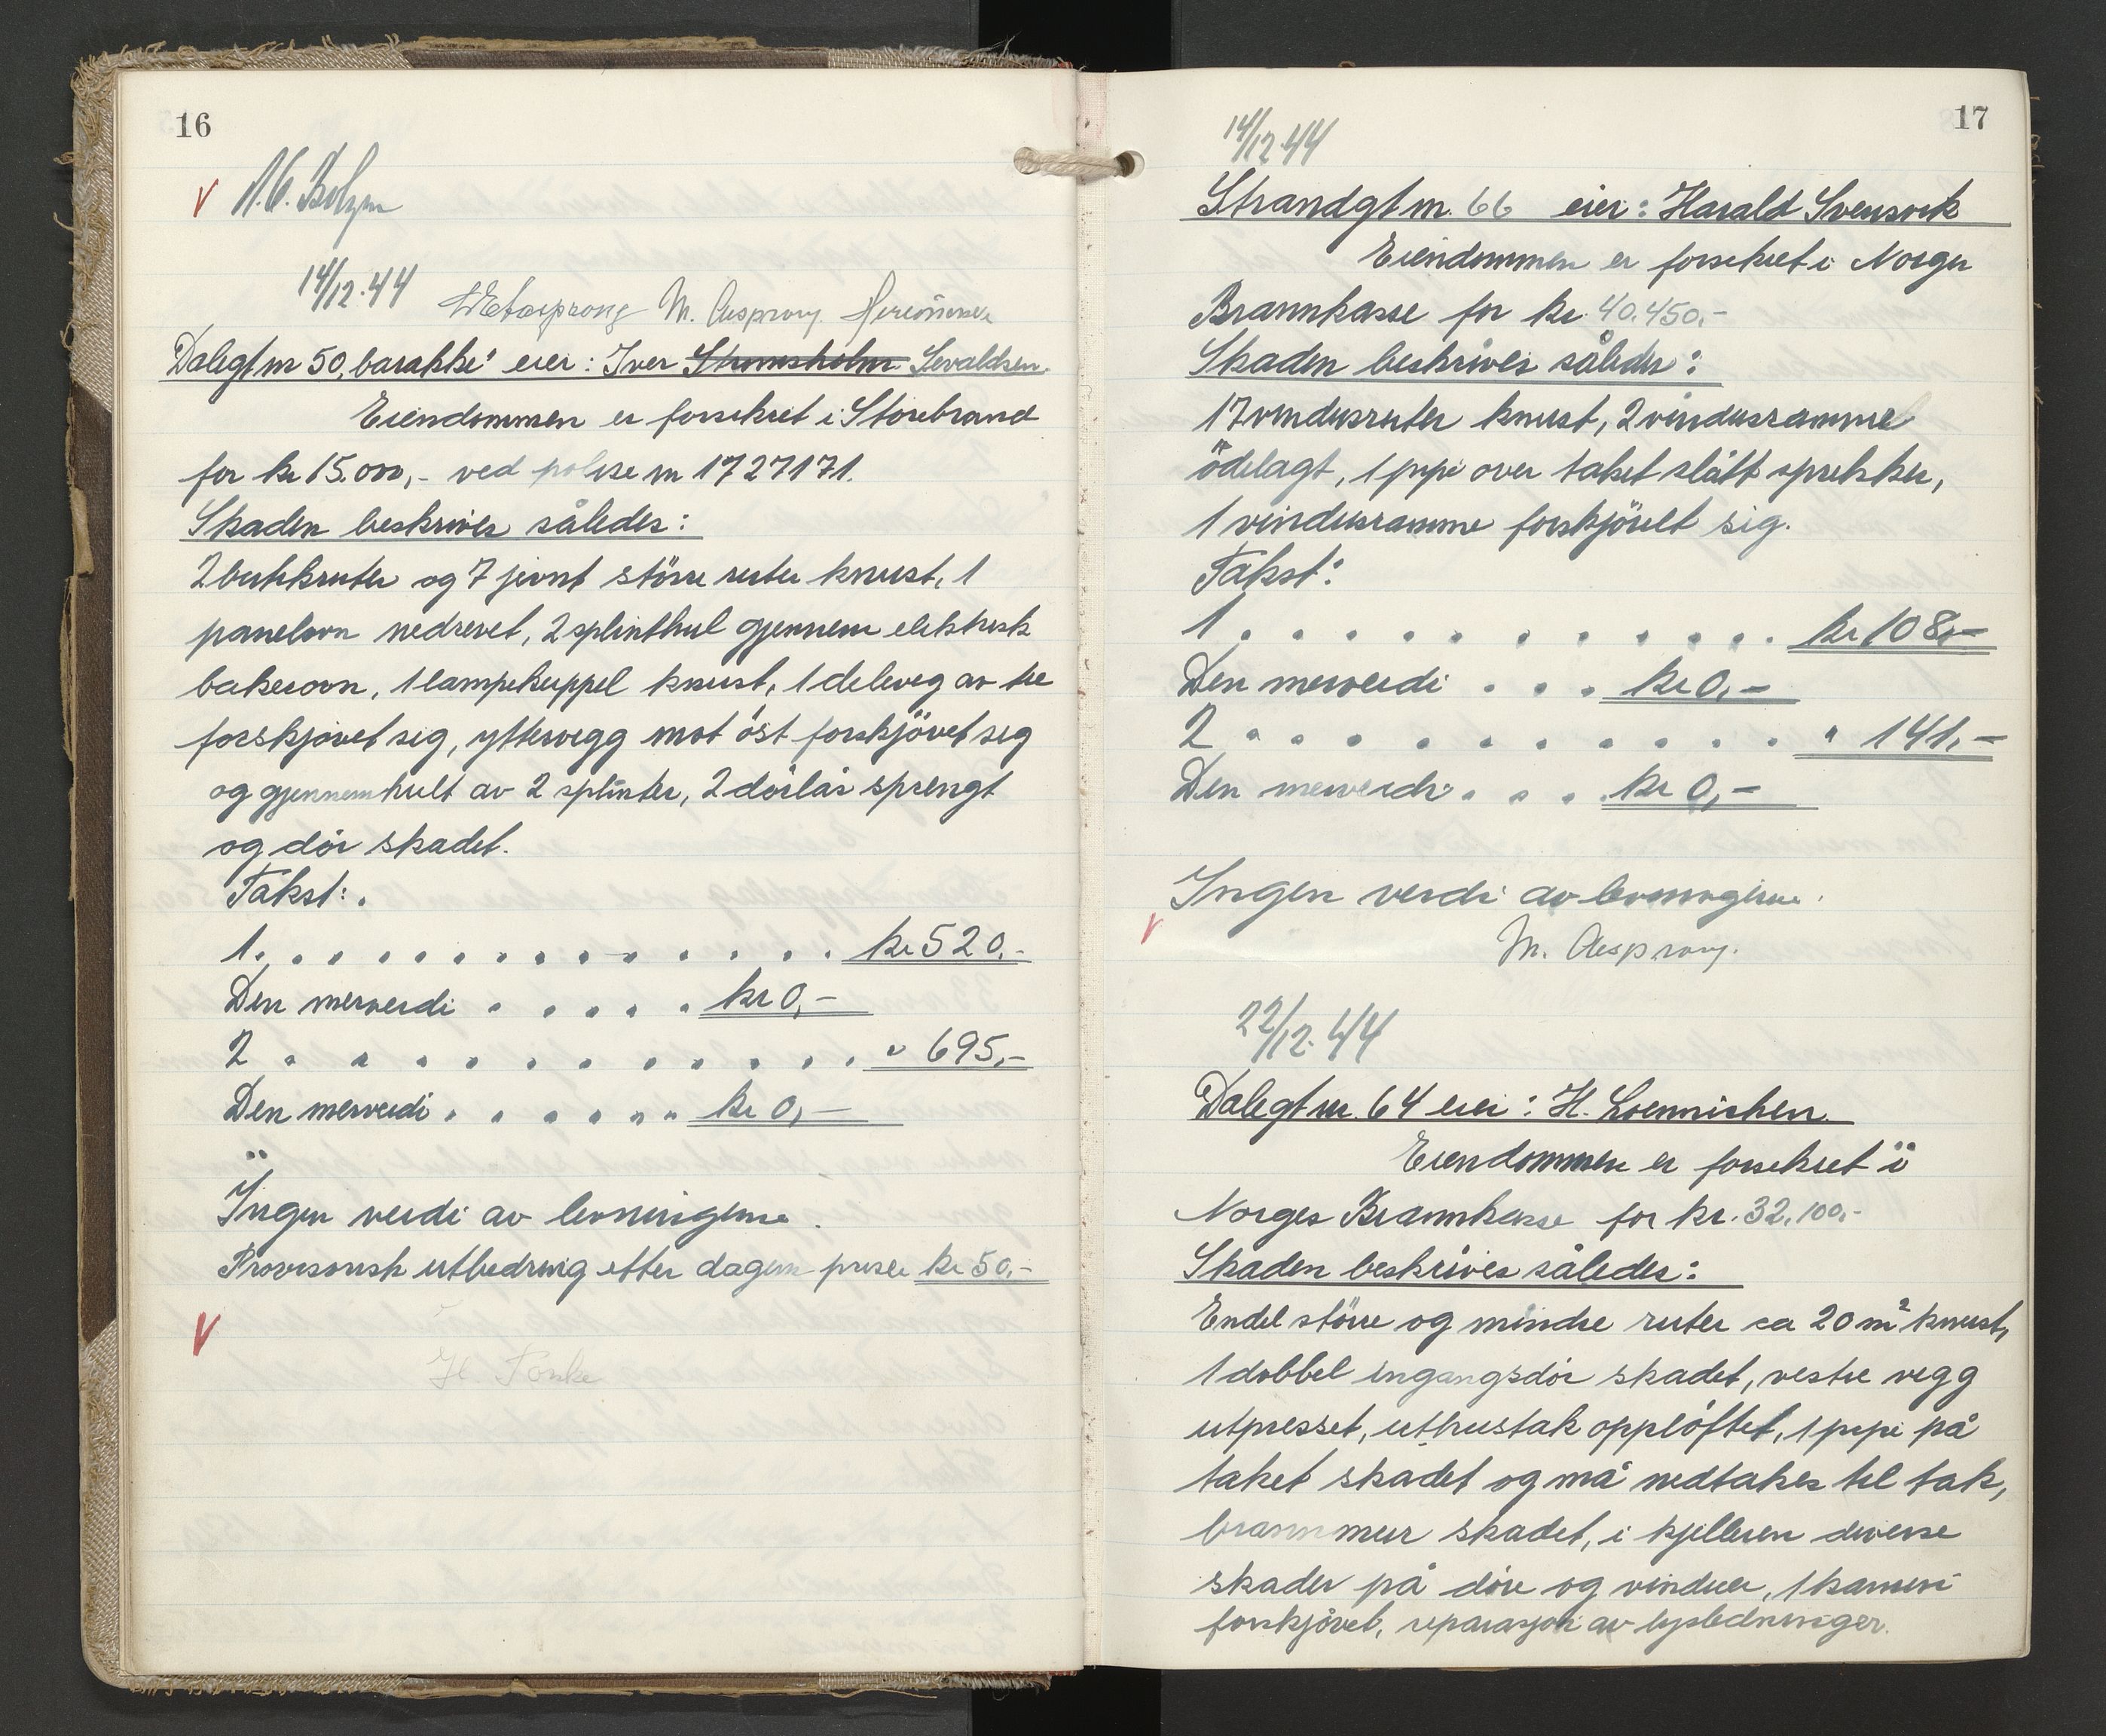 16
14/12.44
M. Aesprong.
Dalegt nr 50, barakke' eier: Iver Strømsholm Sevaldsen.
Eiendommen er forsikret i Storebrand
for kr 15.000,- ved polise nr 1727171.
Skaden beskrives således:
2 butikkruter og 7 jevnt større ruter knust, 1
panelovn nedrevet, 2 splinthul gjennem elektrisk
bakerovn, 1 lampekuppel knust, 1 deleveg av tre
forskjøvet sig, yttervegg mot öst forskjövet sig
og gjennemhult av 2 splinter, 2 dörlås sprengt
og dör skadet.
Takst:.
1. . . . . . . . . . . . . . kr 520.-
Den merverdi . . . . . kr 0,-
2 . . . . . . . . . . . . " 695,-
Den merverdi . . . . . . kr 0,-
Ingen verdi av levningerne.
Provisorisk utbedring etter dagens priser kr 50,-
17
14/12.44
Strandgt nr. 66 eier: Harald Svensvik
Eiendommen er forsikret i Norges
Brannkasse for kr. 40.450,-
Skaden beskrives således:
17 vindusruter knust, 2 vindusramme
ödelagt, 1 pipe over taket slått sprekker,
1 vindusramme forskjövet sig.
Takst:
1. . . . . . . . . . . . kr 108,-
Den merverdi . . . kr 0,-
2. . . . . . . . . . . . " 141,-
Den merverdi . . . kr 0,-
Ingen verdi av levningerne.
M. Aesprong.
22/12.44
Dalegt nr. 64 eier: H. Loennichen.
Eiendommen er forsikret i
Norges Brannkasse for kr. 32.100,-
Skaden beskrives således:
Endel större og mindre ruter ca 20 m² knust,
1 dobbel ingangsdör skadet, vestre vegg
utpresset, uthustak opplöftet, 1 pipe på
taket skadet og må nedtakes til tak,
brannmur skadet, i kjelleren diverse
skader på döre og vinduer, 1 kamin
forskjövet, reparasjon av lysledninger.